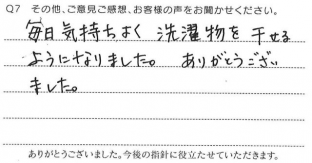 Q7 その他、ご意見ご感想、お客様の声をお聞かせください。
毎日気持ちよく 洗濯物を 干せる
ようになりました。 ありがとうござい
ました。
ありがとうございました。今後の指針に役立たせていただきます。